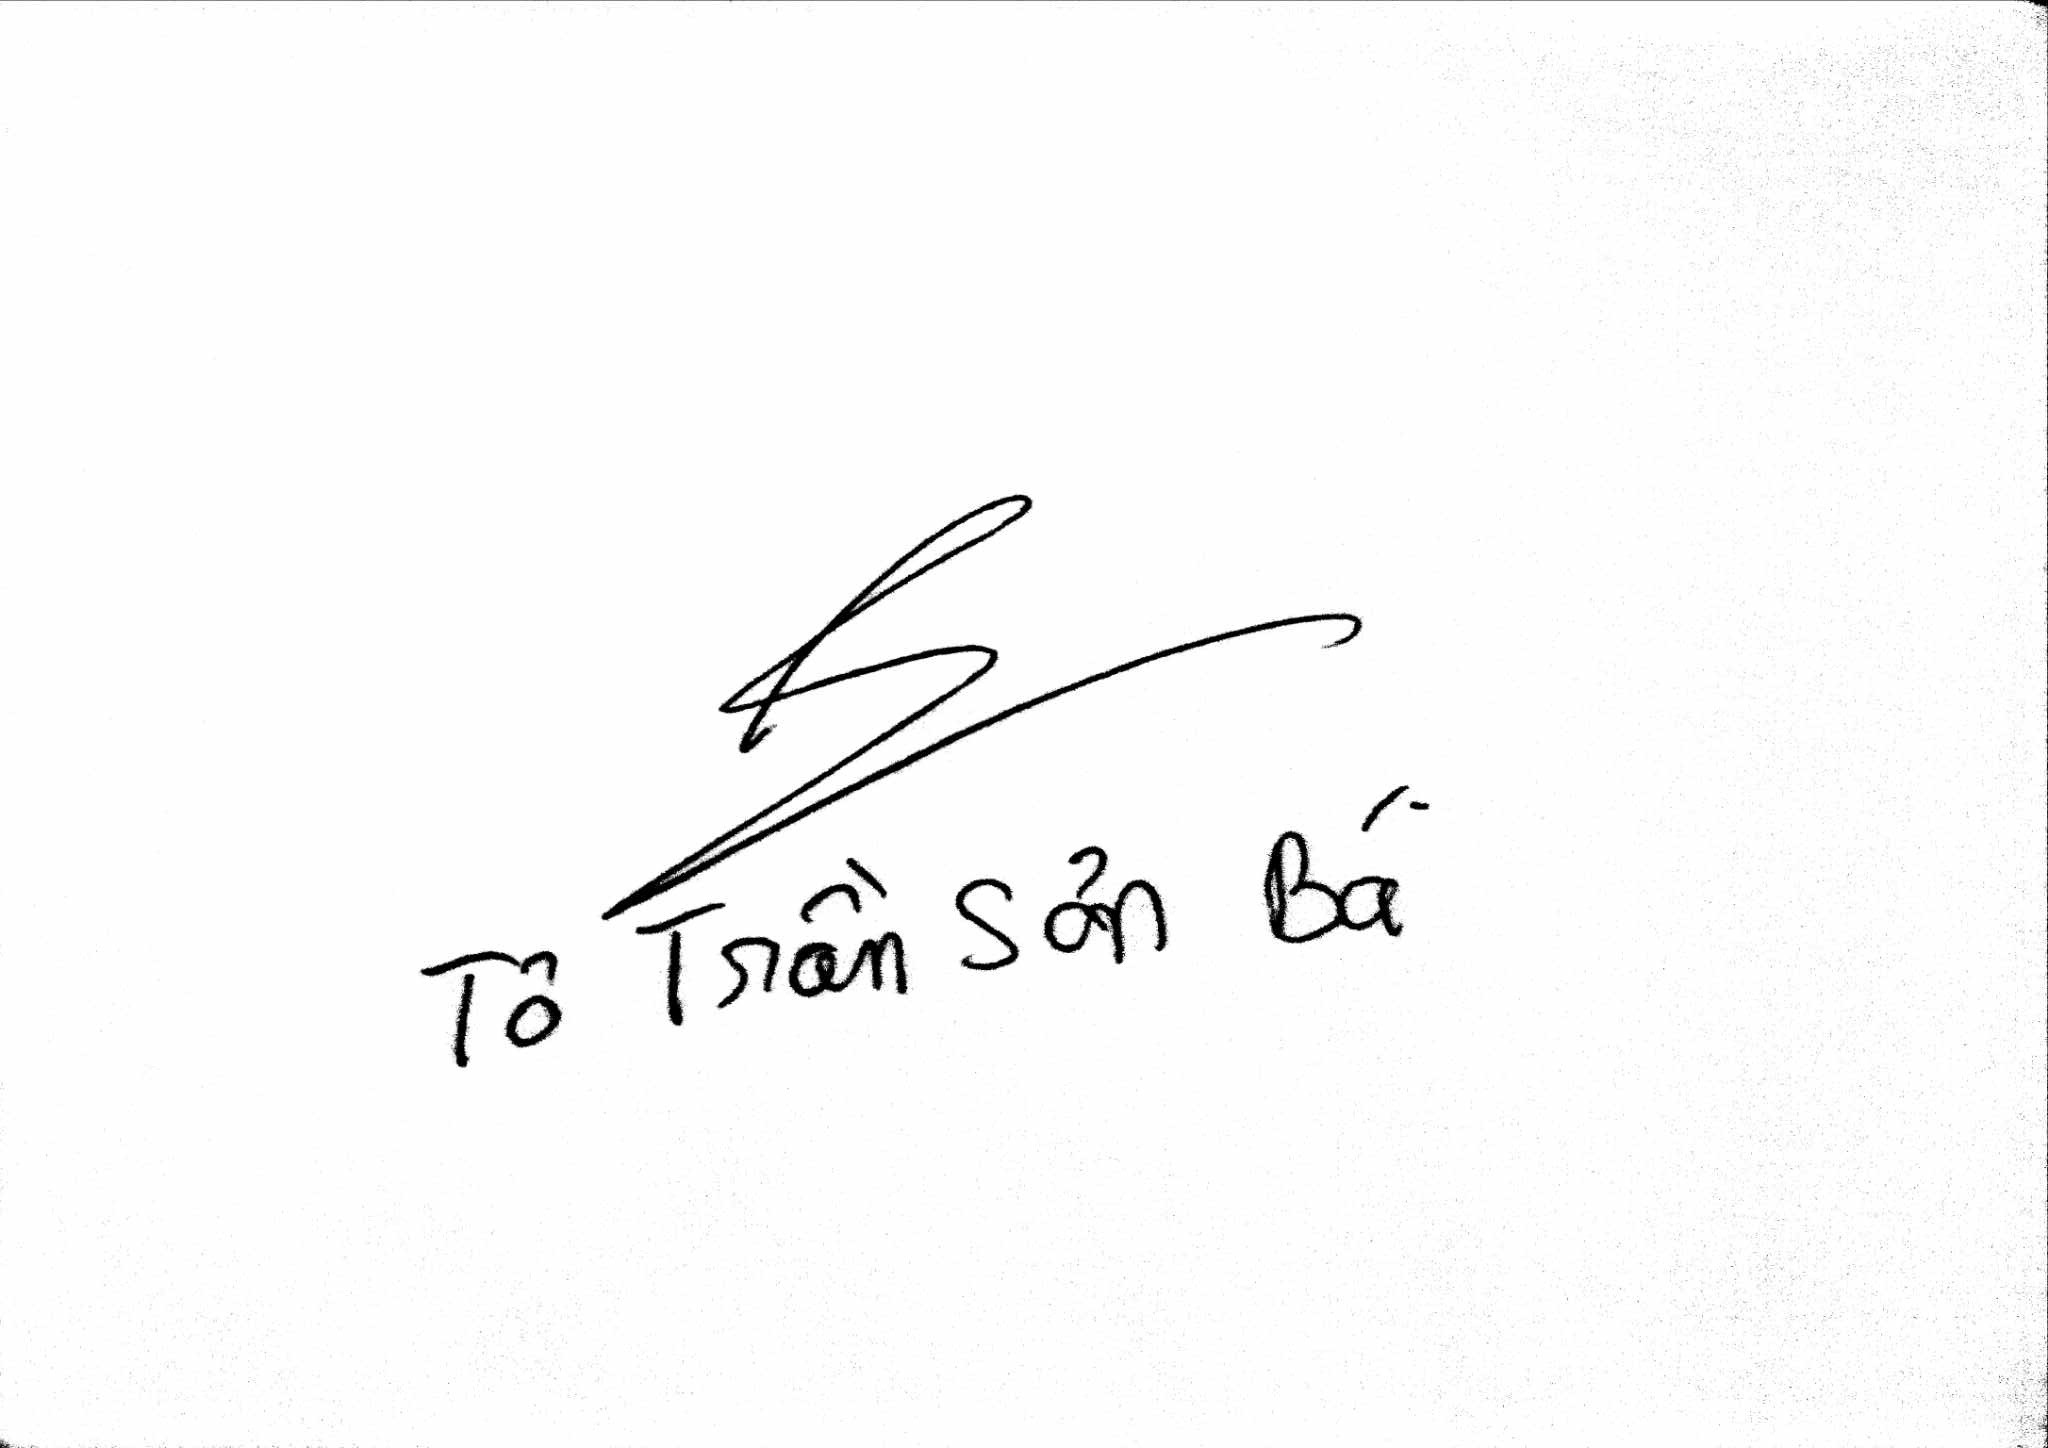 Tô Trần Sản Bá